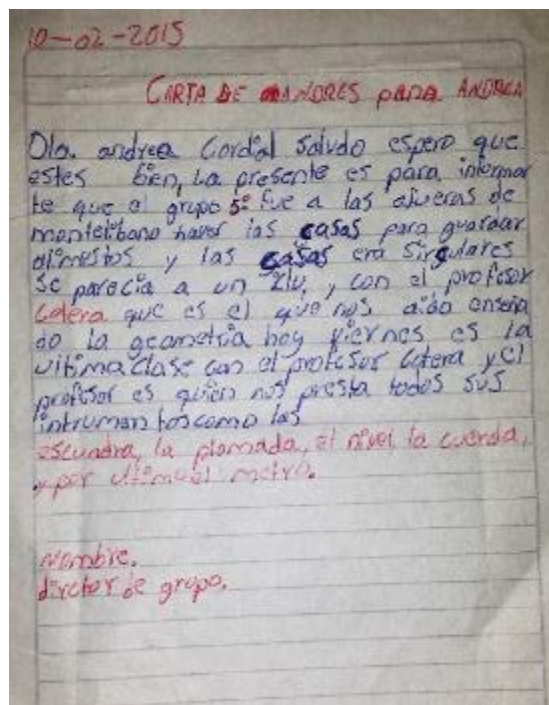 10-02-2015
CARTA DE ANDRES para ANDREA
Ola. andrea Cordial saludo espero que
estes bien, La presente es para informar
te que el grupo 5º fue a las afueras de
montelibano haver las casas para guardar
alimestos y las casas era Sirgulares
se parecia a un Zlu, y con el profesor
Cotera que es el que nos a ido enseña
do la geometria hoy viernes es la
ultima clase con el profesor Cotera y el
profesor es quien nos presta todos sus
intrumentos como las
escundra, la plomada, el nivel la cuerda,
y por ultimo el metro.
Nombre.
dirctor de grupo.